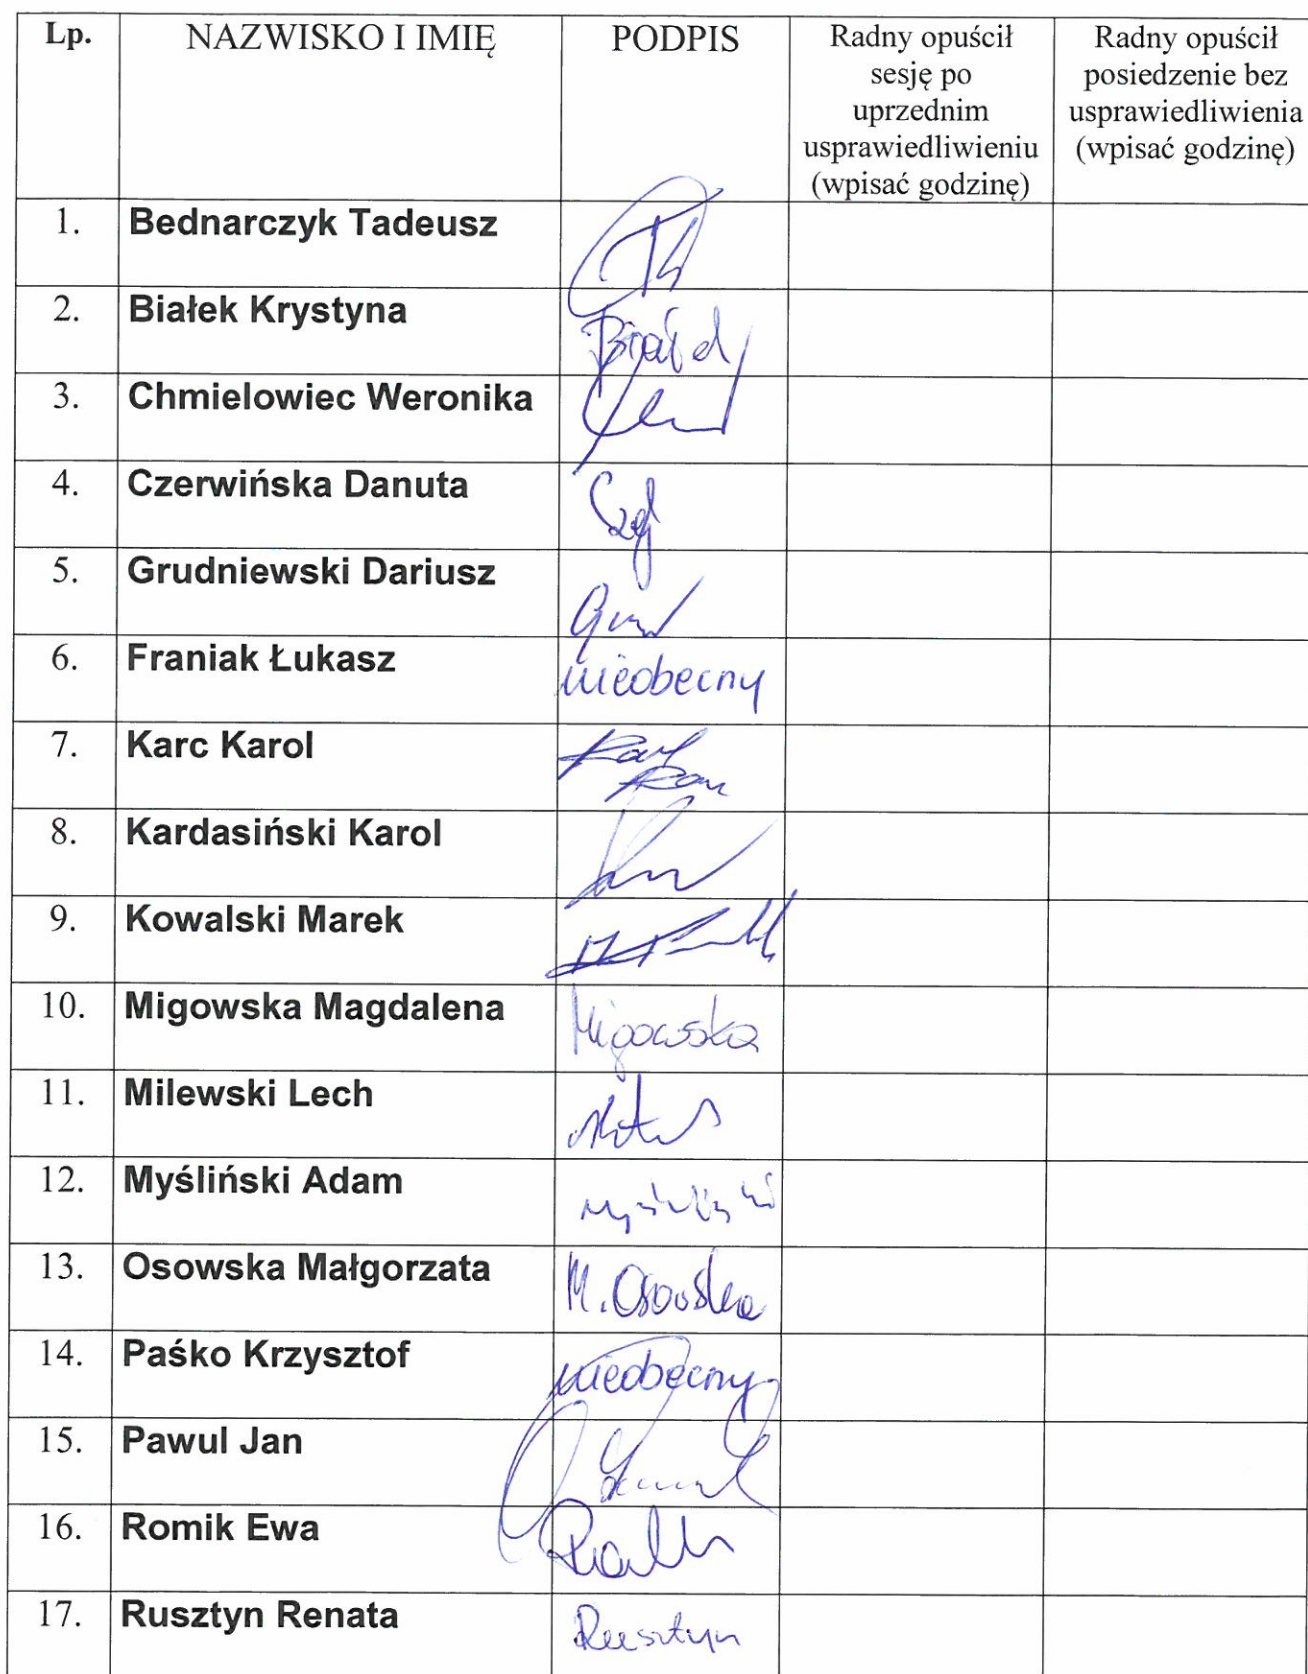 Lp. NAZWISKO I IMIĘ PODPIS Radny opuścił sesję po uprzednim usprawiedliwieniu (wpisać godzinę) Radny opuścił posiedzenie bez usprawiedliwienia (wpisać godzinę)
1. Bednarczyk Tadeusz
2. Białek Krystyna
3. Chmielowiec Weronika
4. Czerwińska Danuta
5. Grudniewski Dariusz
6. Franiak Łukasz nieobecny
7. Karc Karol
8. Kardasiński Karol
9. Kowalski Marek
10. Migowska Magdalena Migowska
11. Milewski Lech
12. Myśliński Adam Myśliński
13. Osowska Małgorzata M. Osowska
14. Paśko Krzysztof nieobecny
15. Pawul Jan
16. Romik Ewa
17. Rusztyn Renata Rusztyn